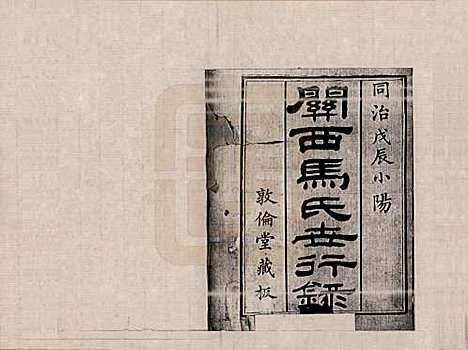 同治戊辰小陽
關西馬氏世行錄
敦倫堂藏板